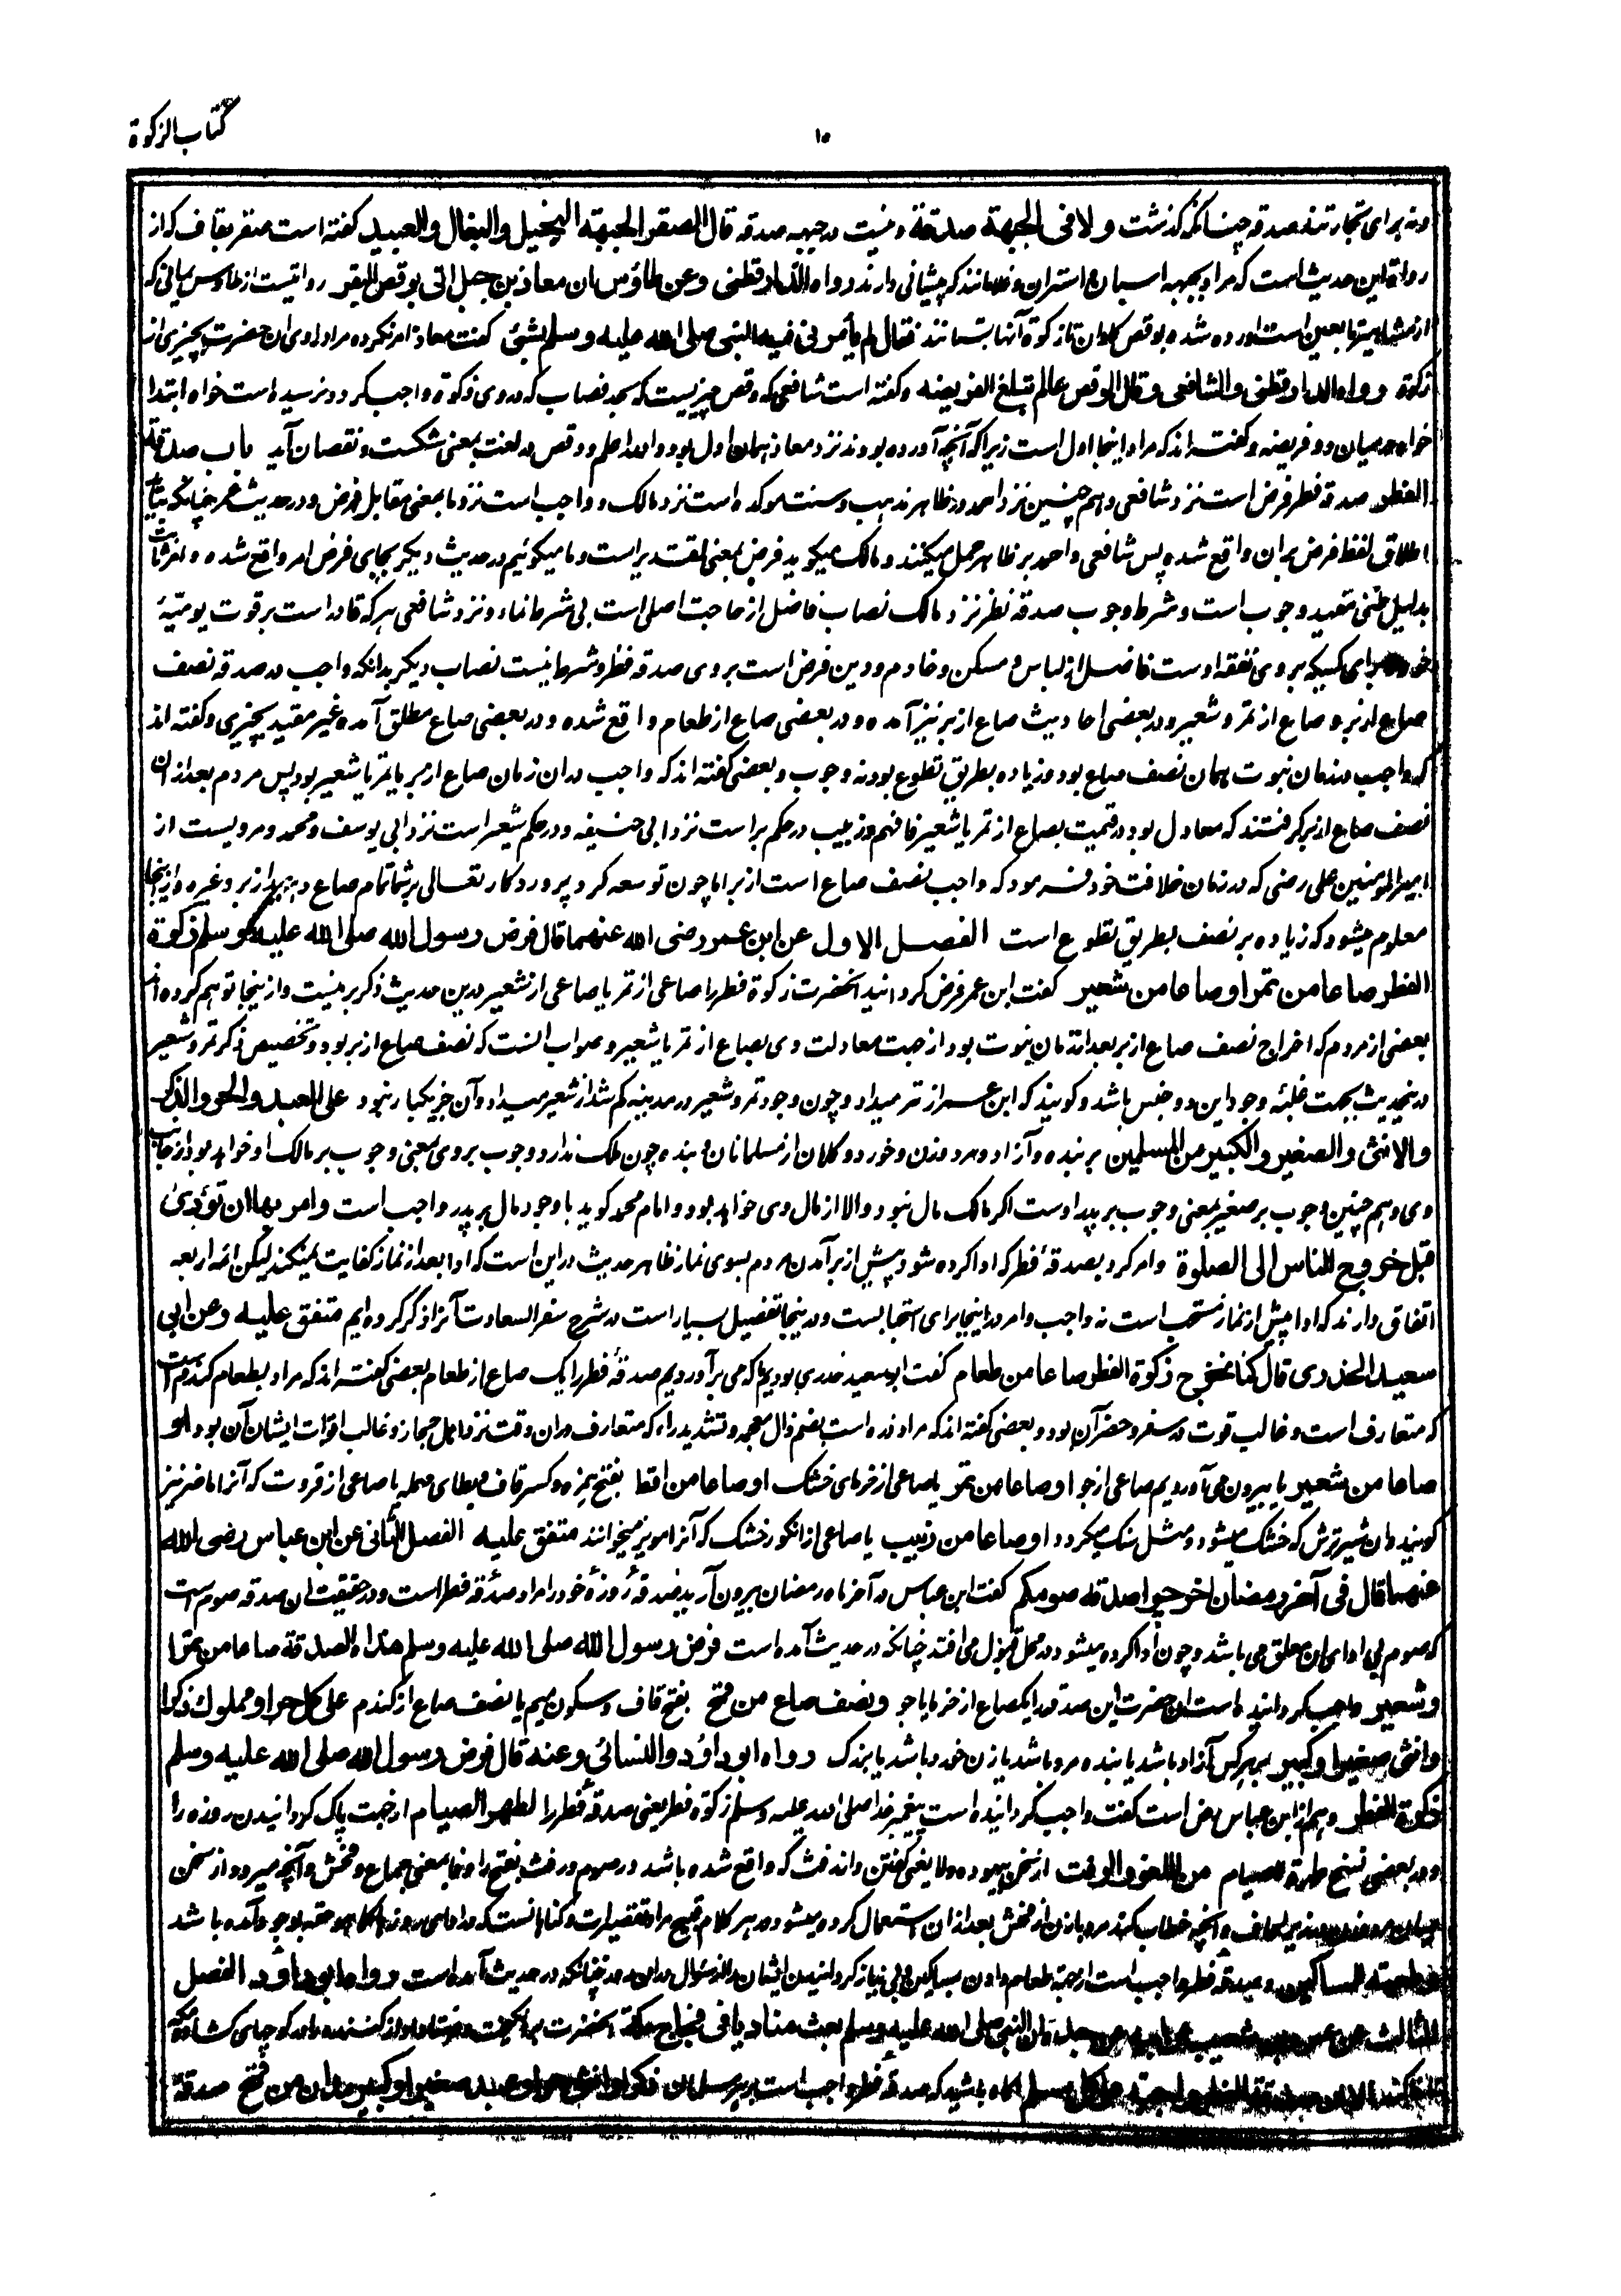 كتاب الزكوة
١٥
ونه برای تجارتند صدقه چنانکه گذشت ولا فی الجبهة صدقة ونیست در جبهه صدقه قال الصقر الجبهة الخیل والبغال والعبید گفته است صقر بقاف که از
رواة این حدیث است که مراد بجبهه اسپان و استران و غلامانند که پیشانی دارند رواه الدارقطنی وعن طاؤس ان معاذ بن جبل اتی بوقص البقر روایتست از طاوس یمانی که
از مشاهیر تابعین است آورده شده بوقص گاوان تا زکوة آنها بستانند فقال لم یأمرنی فیه النبی صلی الله علیه وسلم بشئ گفت معاذ امر نکرده مرا در وی آن حضرت بچیزی از
زکوة رواه الدارقطنی والشافعی وقال الوقص ما لم یبلغ الفریضه وگفته است شافعی که وقص چیزیست که بحد نصاب که در وی زکوة واجب گردد نرسیده است خواه ابتدا
خواه در میان دو فریضه وگفته اند که مراد اینجا اول است زیرا که آنچه آورده بودند نزد معاذ همان اول بود والله اعلم ووقص در لغت بمعنی شکست ونقصان آید باب صدقة
الفطر صدقه فطر فرض است نزد شافعی وهم چنین نزد احمد در ظاهر مذهب وسنت موکده است نزد مالک وواجب است نزد ما بمعنی مقابل فرض ودر حدیث عمر چنانکه بیاید
اطلاق لفظ فرض بران واقع شده پس شافعی واحمد بر ظاهر حمل میکنند ومالک میگوید فرض بمعنی تقدیر است وما میگوئیم در حدیث دیگر بجای فرض امر واقع شده و
بدلیل ظنی مفید وجوب است وشرط وجوب صدقه فطر نزد ما ملک نصاب فاضل از حاجت اصلی است بی شرط نماء ونزد شافعی هر که قادر است بر قوت یومیۀ
خود وبرای کسیکه بروی نفقه اوست فاضل از لباس ومسکن وخادم ودین فرض است بروی صدقه فطر وشرط نیست نصاب دیگر بدانکه واجب در صدقه نصف
صاع از بر وصاع از تمر وشعیر ودر بعضی احادیث صاع از بر نیز آمده ودر بعضی صاع از طعام واقع شده ودر بعضی صاع مطلق آمده غیر مقید بچیزی وگفته اند
که واجب در زمان نبوت همان نصف صاع بود وزیاده بطریق تطوع بود نه وجوب وبعضی گفته اند که واجب دران زمان صاع از بر یا تمر یا شعیر بود پس مردم بعد ازان
نصف صاع از بر گرفتند که معادل بود در قیمت بصاع از تمر یا شعیر فافهم وزبیب در حکم بر است نزد ابی حنیفه ودر حکم شعیر است نزد ابی یوسف ومحمد ومرویست از
امیر المومنین علی رضی که در زمان خلافت خود فرمود که واجب نصف صاع است از بر اما چون توسعه کرد پروردگار تعالی بر شما تمام صاع دهید از بر وغیره وازینجا
معلوم میشود که زیاده بر نصف بطریق تطوع است الفصل الاول عن ابن عمر رضی الله عنهما قال فرض رسول الله صلی الله علیه وسلم زکوة
الفطر صاعا من تمر او صاعا من شعیر گفت ابن عمر فرض گردانید آنحضرت زکوة فطر را صاعی از تمر یا صاعی از شعیر درین حدیث ذکر بر نیست وازینجا توهم کرده اند
بعضی از مردم که اخراج نصف صاع از بر بعد از زمان نبوت بود از جهت معادلت وی بصاع از تمر یا شعیر وصواب آنست که نصف صاع از بر بود وتخصیص ذکر تمر وشعیر
درینحدیث بجهت غلبۀ وجود این دو جنس باشد وگویند که ابن عمر از تمر میداد وچون وجود تمر وشعیر در مدینه کم شد از شعیر میداد وآن جز یکبار نبود علی العبد والحر والذکر
والانثی والصغیر والکبیر من المسلمین بر بنده وآزاد ومرد وزن وخورد وکلان از مسلمانان وبنده چون ملک ندارد وجوب بروی بمعنی وجوب بر مالک او خواهد بود از جانب
وی وهم چنین وجوب بر صغیر بمعنی وجوب بر پدر اوست اگر مالک مال نبود والا از مال وی خواهد بود وامام محمد گوید با وجود مال بر پدر واجب است وامر بها ان تؤدی
قبل خروج الناس الی الصلوة وامر کرد بصدقۀ فطر که ادا کرده شود پیش از برآمدن مردم بسوی نماز ظاهر حدیث در این است که ادا بعد از نماز کفایت نمیکند لیکن ائمه اربعه
اتفاق دارند که ادا پیش از نماز مستحب است نه واجب وامر در اینجا برای استحبابست ودرینجا تفصیل بسیار است در شرح سفر السعادت آنرا ذکر کرده ایم متفق علیه وعن ابی
سعید الخدری قال کنا نخرج زکوة الفطر صاعا من طعام گفت ابو سعید خدری بودیم ما که می برآوردیم صدقۀ فطر را یک صاع از طعام بعضی گفته اند که مراد بطعام گندم است
که متعارف است وغالب قوت در سفر وحضر آن بود وبعضی گفته اند که مراد ذره است بضم ذال معجمه وتشدید راء که متعارف دران وقت نزد اهل حجاز وغالب اقوات ایشان آن بود او
صاعا من شعیر یا بیرون می آوردیم صاعی از جو او صاعا من تمر یا صاعی از خرمای خشک او صاعا من اقط بفتح همزه وکسر قاف وبطای مهمله یا صاعی از قروت که آنرا ماضر نیز
گویند وآن شیر ترش که خشک میشود ومثل سنگ میگردد او صاعا من زبیب یا صاعی از انگور خشک که آنرا مویز میخوانند متفق علیه الفصل الثانی عن ابن عباس رضی الله
عنهما قال فی آخر رمضان اخرجوا صدقة صومکم گفت ابن عباس در آخر ماه رمضان بیرون آرید صدقۀ روزۀ خود را مراد صدقۀ فطر است ودر حقیقت آن صدقه صوم است
که صوم بی ادای آن معلق می باشد وچون ادا کرده میشود در محل قبول می افتد چنانکه در حدیث آمده است فرض رسول الله صلی الله علیه وسلم هذه الصدقة صاعا من تمر او
وشعیر واجب گردانیده است آن حضرت این صدقه را یکصاع از خرما یا جو ونصف صاع من قمح بفتح قاف وسکون میم یا نصف صاع از گندم علی کل حر او مملوک ذکر او
وانثی صغیر او کبیر بر هر کس آزاد باشد یا بنده مرد باشد یا زن خورد باشد یا بزرگ رواه ابو داؤد والنسائی وعنه قال فرض رسول الله صلی الله علیه وسلم
زکوة الفطر وهم از ابن عباس رض است گفت واجب گردانیده است پیغمبر خدا صلی الله علیه وسلم زکوة فطر یعنی صدقۀ فطر را لطهر الصیام از جهت پاک گردانیدن روزه را
ودر بعضی نسخ طهرة للصیام من اللغو والرفث از سخن بیهوده ولا یعنی گفتن واز رفث که واقع شده باشد در صوم ورفث بفتح را وفا بمعنی جماع وفحش وآنچه میرود از سخن
میان مرد وزن زیر لحاف وآنچه خطاب کند مرد بازن از فحش بعد ازان استعمال کرده میشود در هر کلام قبیح مراد تقصیرات وگناهانست که در ادای روزه بوجود آمده باشد
وطعمة للمساکین وصدقۀ فطر واجب است از جهت طعام دادن مساکین وبی نیاز گردانیدن ایشان را از سؤال دران روز چنانکه در حدیث آمده است رواه ابو داؤد الفصل
الثالث عن عمرو بن شعیب عن ابیه عن جده ان النبی صلی الله علیه وسلم بعث منادیا فی فجاج مکة آنحضرت برانگیخت وفرستاد آواز کننده را در کوچهای کشاده مکه
الا ان صدقة الفطر واجبة علی کل مسلم آگاه باشید که صدقۀ فطر واجب است بر هر مسلمان ذکر او انثی حر او عبد صغیر او کبیر مدان من قمح صدقۀ